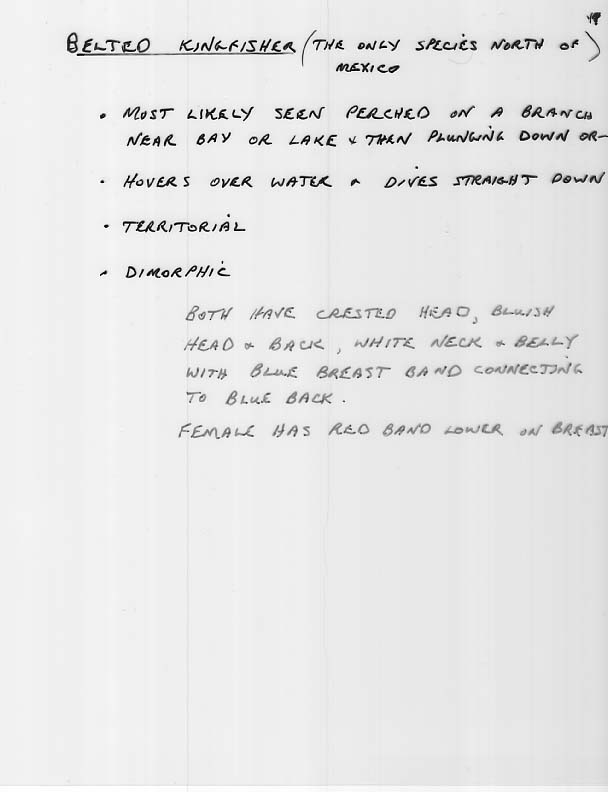 BELTED KINGFISHER (THE ONLY SPECIES NORTH OF
MEXICO)
• MOST LIKELY SEEN PERCHED ON A BRANCH
NEAR BAY OR LAKE & THEN PLUNGING DOWN OR-
• HOVERS OVER WATER & DIVES STRAIGHT DOWN
• TERRITORIAL
• DIMORPHIC
BOTH HAVE CRESTED HEAD, BLUISH
HEAD & BACK, WHITE NECK & BELLY
WITH BLUE BREAST BAND CONNECTING
TO BLUE BACK.
FEMALE HAS RED BAND LOWER ON BREAST